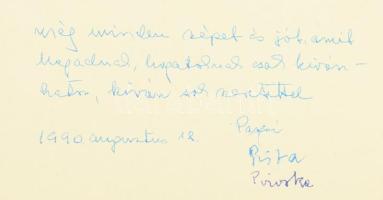 még minden szépet és jót, amit
magadnak, magatoknak csak kíván-
hatok, kíván sok szeretettel
1990 augusztus 12.
Pista
Piroska